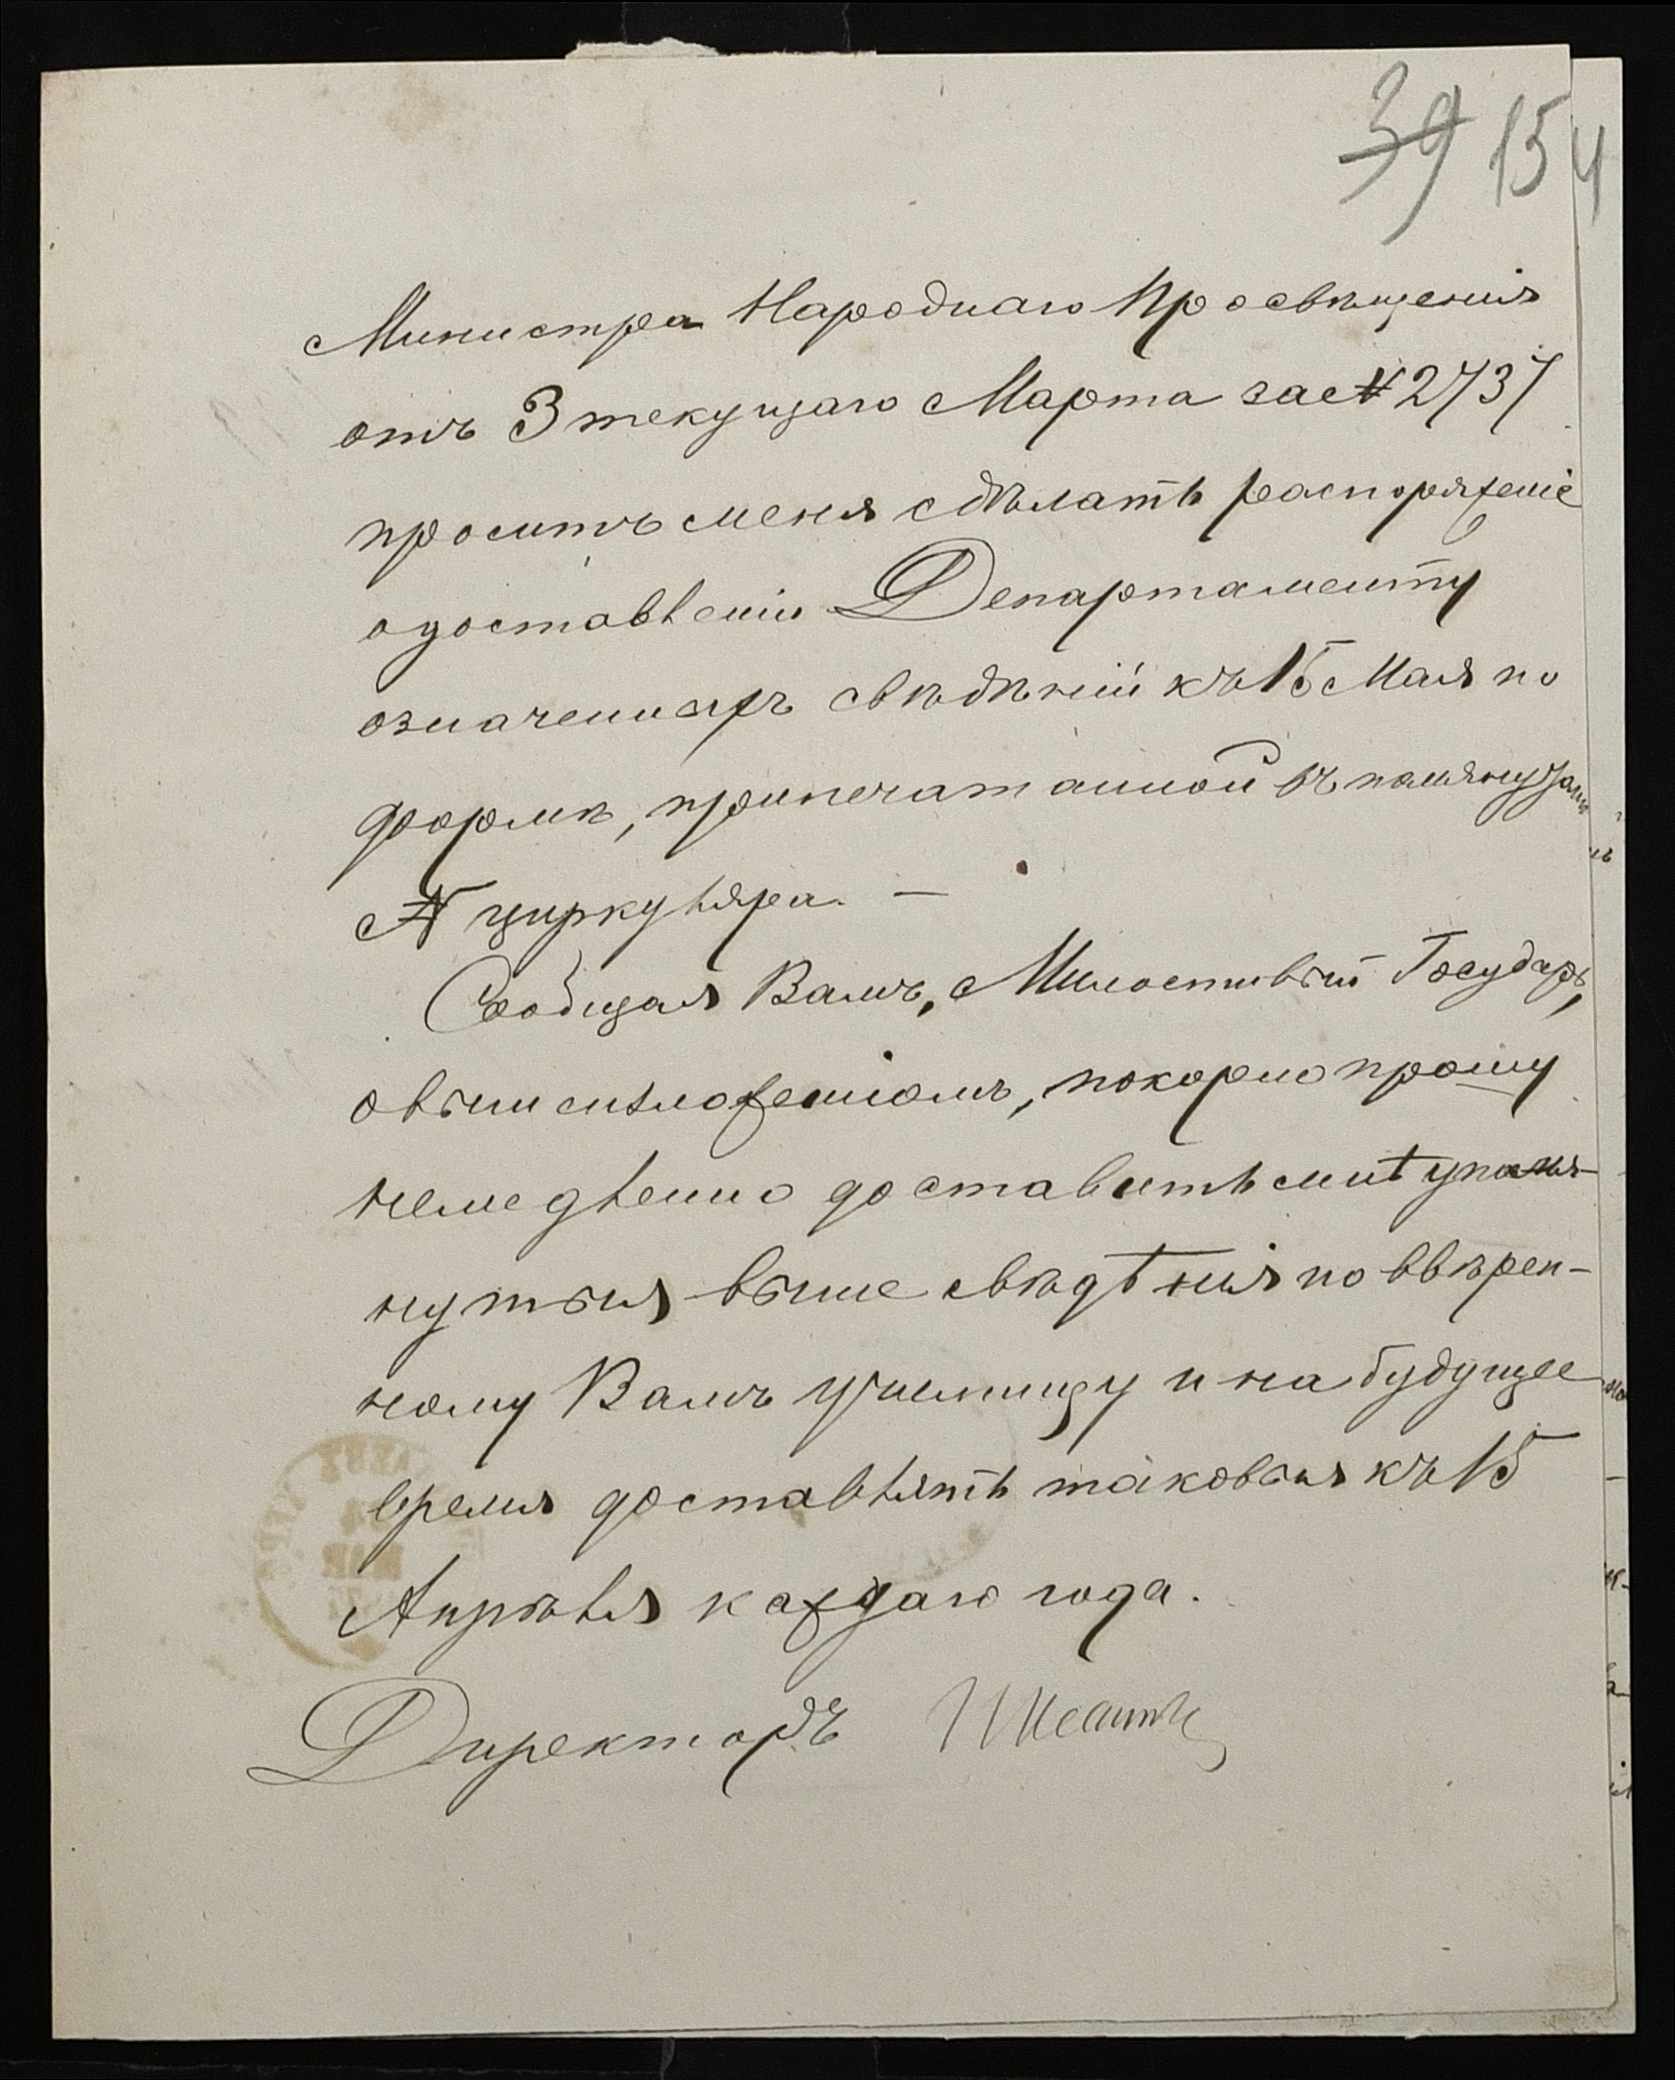 39 15
4
Министра Народнаго Просвѣщенія
отъ 3 текущаго Марта за № 2737
проситъ меня сдѣлать распоряженіе
о доставленіи Департаменту
означенныхъ свѣдѣній къ 15 Мая по
формѣ, припечатанной въ помянутомъ
№ циркуляра. —
Сообщая Вамъ, Милостивый Государь,
о вышеизложенномъ, покорно прошу
немедленно доставить мнѣ упомя-
нутыя выше свѣдѣнія по ввѣрен-
ному Вамъ училищу и на будущее
время доставлять таковыя къ 15
Апрѣля каждаго года.
Директоръ